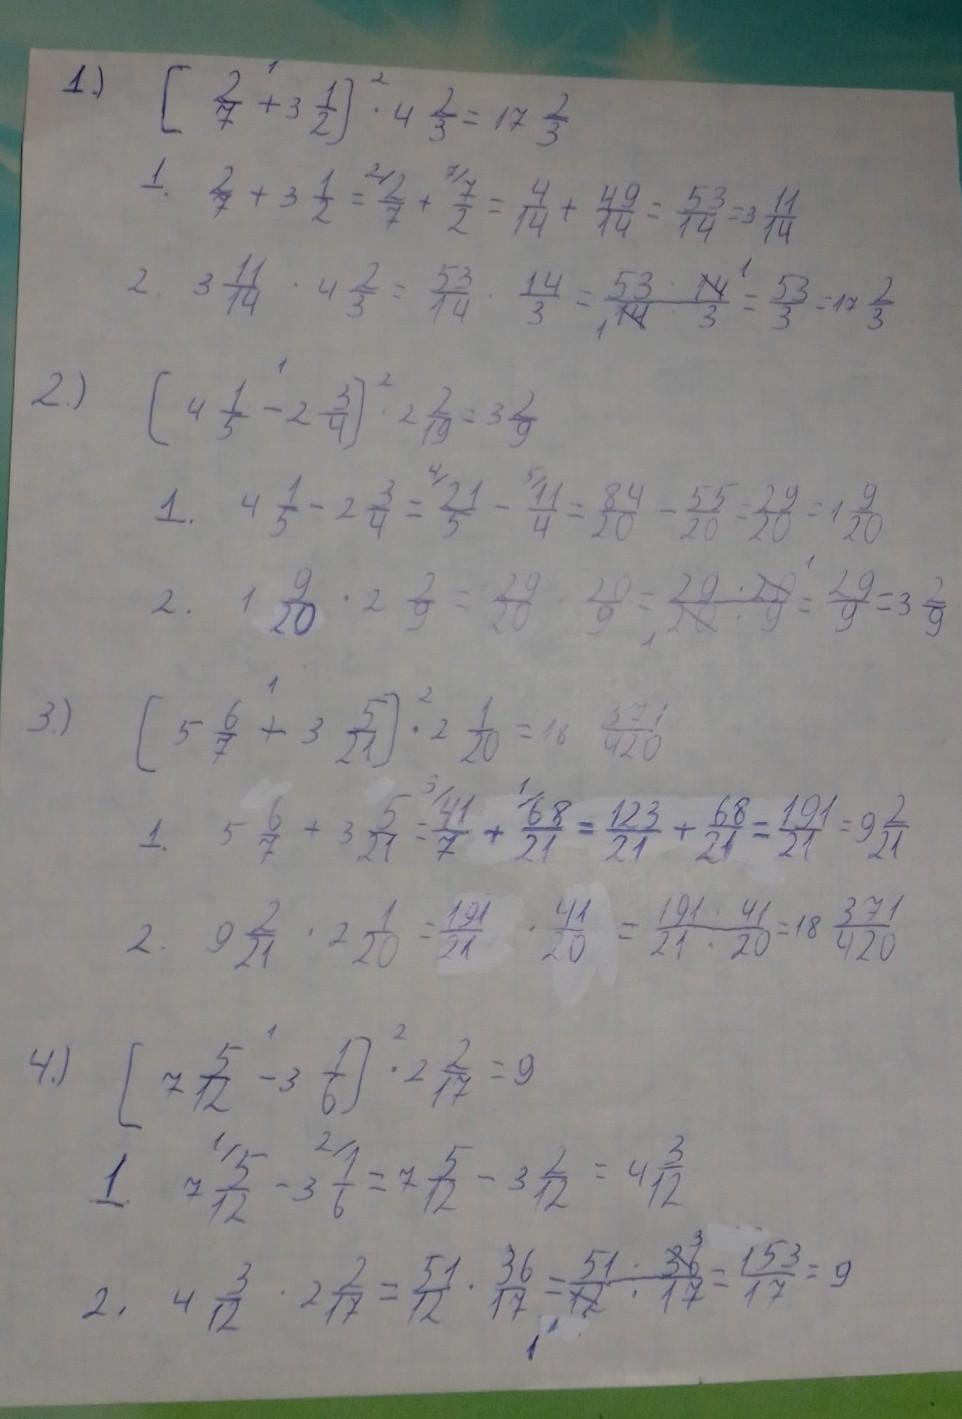 1.) [2/7 + 3 1/2] · 4 2/3 = 17 2/3
1. 2/7 + 3 1/2 = 2/7 + 7/2 = 4/14 + 49/14 = 53/14 = 3 11/14
2. 3 11/14 · 4 2/3 = 53/14 · 14/3 = 53 · 14/14 · 3 = 53/3 = 17 2/3
2.) (4 1/5 - 2 3/4) · 2 2/19 = 3 2/9
1. 4 1/5 - 2 3/4 = 21/5 - 11/4 = 84/20 - 55/20 = 29/20 = 1 9/20
2. 1 9/20 · 2 2/9 = 29/20 · 20/9 = 29 · 20/20 · 9 = 29/9 = 3 2/9
3.) (5 6/7 + 3 5/21) · 2 1/20 = 18 371/420
1. 5 6/7 + 3 5/21 = 41/7 + 68/21 = 123/21 + 68/21 = 191/21 = 9 2/21
2. 9 2/21 · 2 1/20 = 191/21 · 41/20 = 191 · 41/21 · 20 = 18 371/420
4.) (7 5/12 - 3 1/6) · 2 2/17 = 9
1 7 5/12 - 3 1/6 = 7 5/12 - 3 2/12 = 4 3/12
2. 4 3/12 · 2 2/17 = 51/12 · 36/17 = 51 · 36/12 · 17 = 153/17 = 9